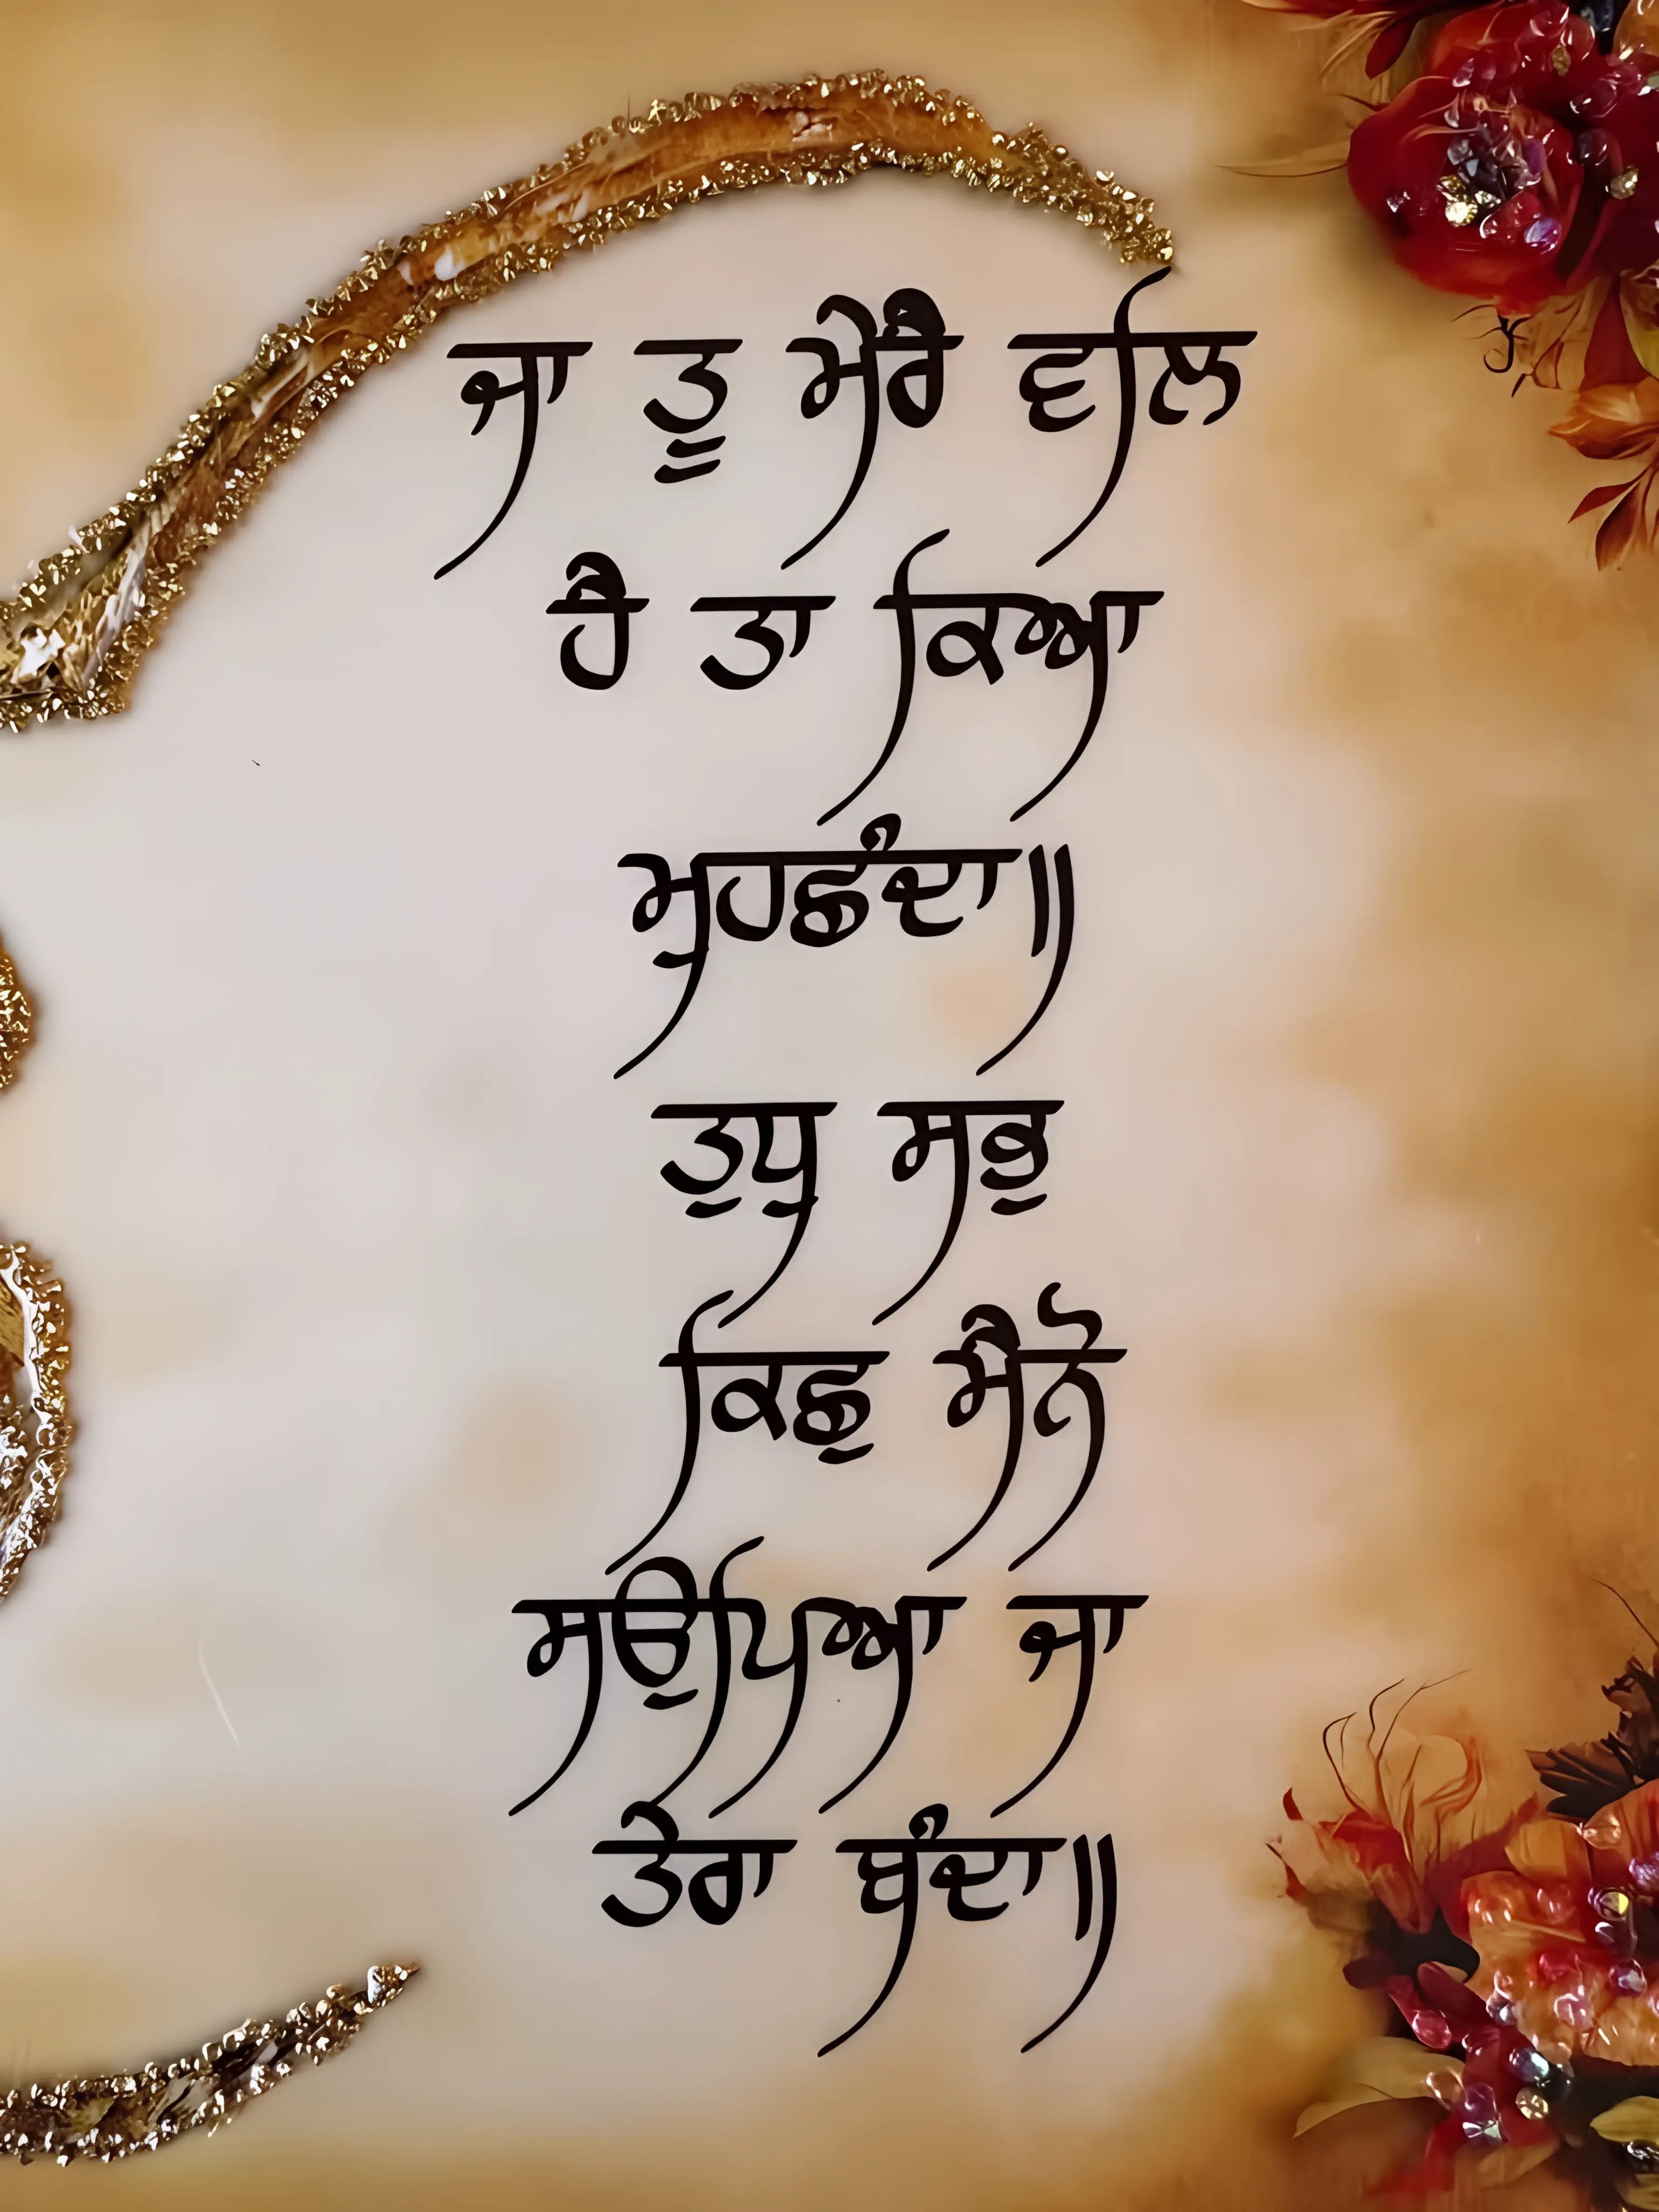 ਜਾ ਤੂ ਮੇਰੈ ਵਲਿ
ਹੈ ਤਾ ਕਿਆ
ਮੁਹਛੰਦਾ॥
ਤੁਧੁ ਸਭੁ
ਕਿਛੁ ਮੈਨੋ
ਸਉਪਿਆ ਜਾ
ਤੇਰਾ ਬੰਦਾ॥